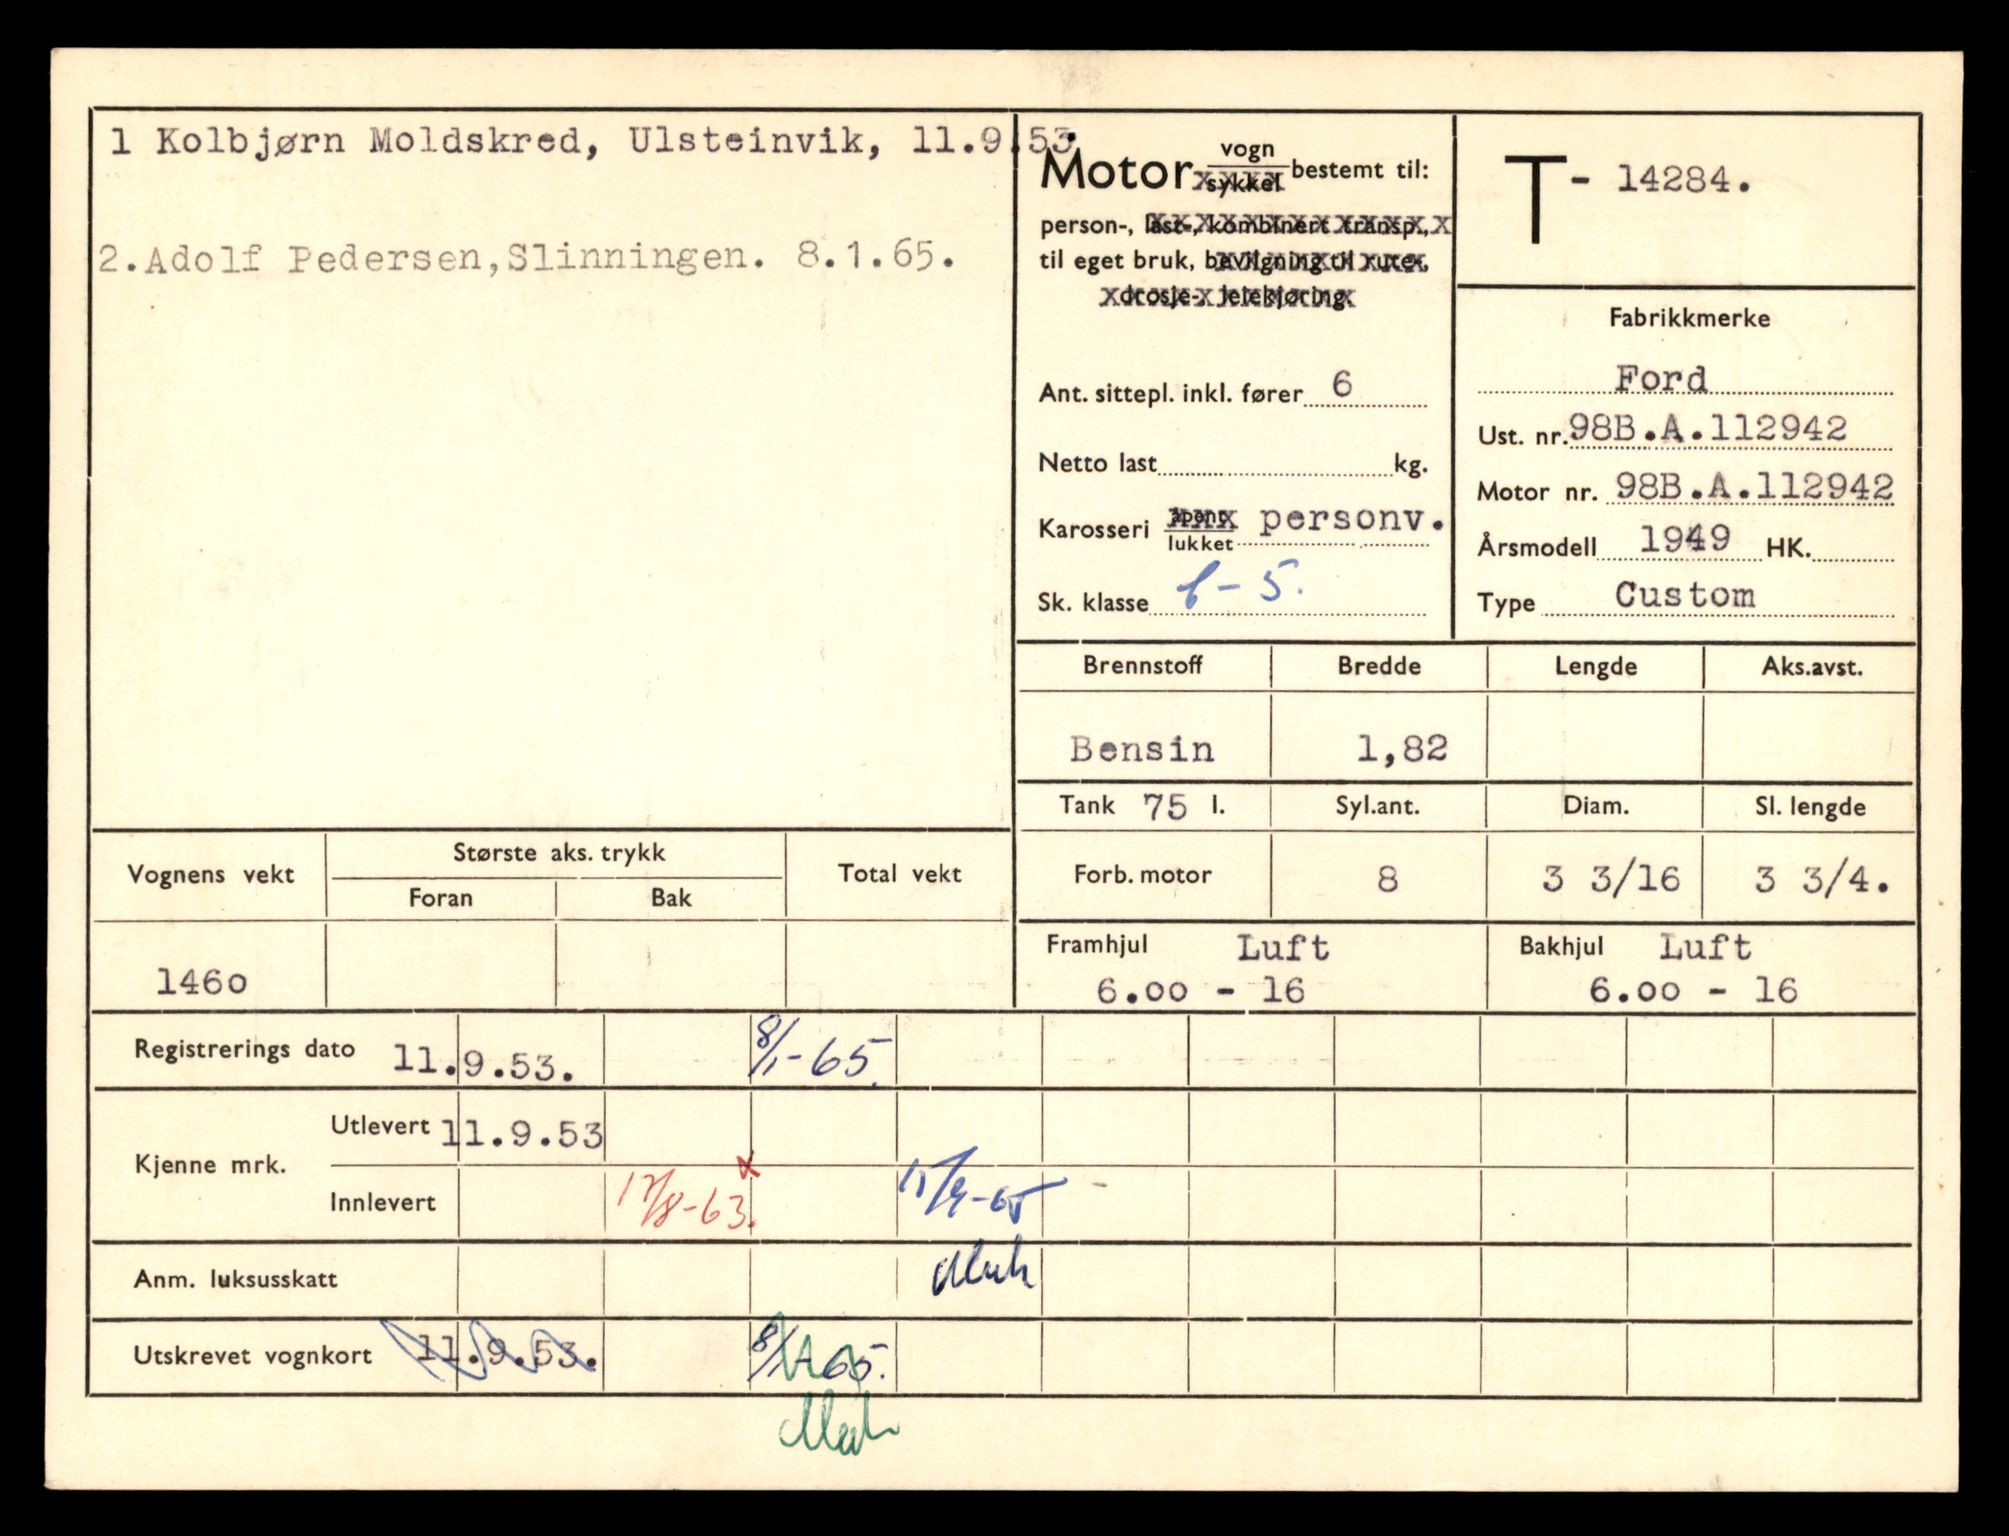 1 Kolbjørn Moldskred, Ulsteinvik, 11.9.53.
2.Adolf Pedersen,Slinningen. 8.1.65.
Motor vogn sykkel bestemt til:
person-, last-, kombinert transp.,
til eget bruk, bevilgning til rute-,
drosje-, leiekjøring
Ant. sittepl. inkl. fører 6
Netto last kg.
Karosseri åpent lukket personv.
Sk. klasse 6-5.
T- 14284.
Fabrikkmerke
Ford
Ust. nr. 98B.A.112942
Motor nr. 98B.A.112942
Årsmodell 1949 HK.
Type Custom
Brennstoff Bredde Lengde Aks.avst.
Bensin 1,82
Tank 75 l. Syl.ant. Diam. Sl. lengde
Forb. motor 8 3 3/16 3 3/4.
Framhjul Luft Bakhjul Luft
6.00 - 16 6.00 - 16
Vognens vekt Største aks. trykk Total vekt
Foran Bak
1460
Registrerings dato 11.9.53. 8/1-65.
Kjenne mrk. Utlevert 11.9.53
Innlevert 17/8-63. x 15/9-65
Anm. luksusskatt
Utskrevet vognkort 11.9.53. 8/1-65.